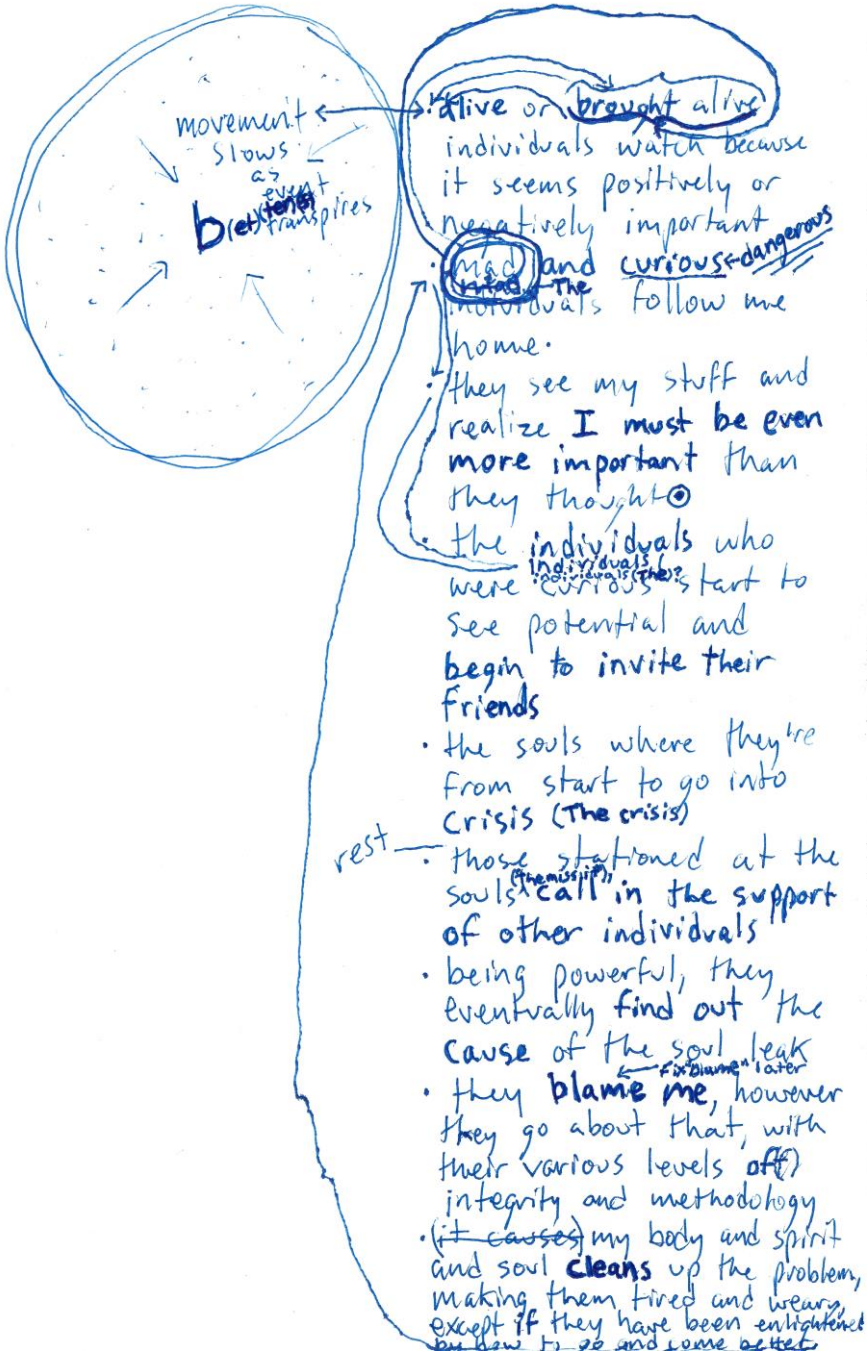 movement
slows
as
event
b(et)(tend)
transpires
• alive or brought alive
individuals watch because
it seems positively or
negatively important
• mad and curious ← dangerous
The
individuals follow me
home.
• they see my stuff and
realize I must be even
more important than
they thought
• the individuals who
individuals (
individuals (The)?
were curious start to
see potential and
begin to invite their
friends
• the souls where they're
from start to go into
crisis (The crisis)
rest
• those stationed at the
souls call in the support
of other individuals
• being powerful, they
eventually find out the
cause of the soul leak
fix "blame" later
• they blame me, however
they go about that, with
their various levels of
integrity and methodology
• (it causes) my body and spirit
and soul cleans up the problem,
making them tired and weary,
except if they have been enlightened
by how to go and come better